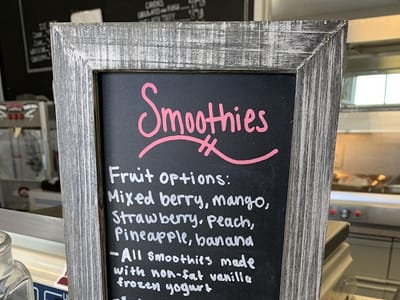 Smoothies
Fruit options:
Mixed berry, mango,
Strawberry, peach,
Pineapple, banana
- All smoothies made
with non-fat vanilla
frozen yogurt